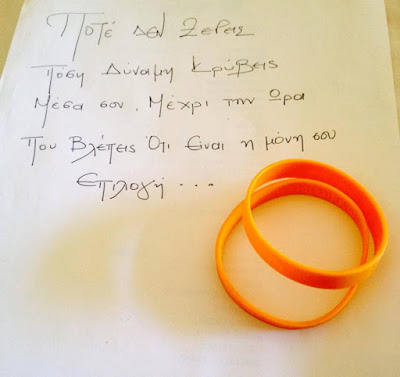 Ποτέ δεν ξέρεις
πόση Δύναμη Κρύβεις
Μέσα σου. Μέχρι την Ωρα
που Βλέπεις Ότι Είναι η μόνη σου
Επιλογή...